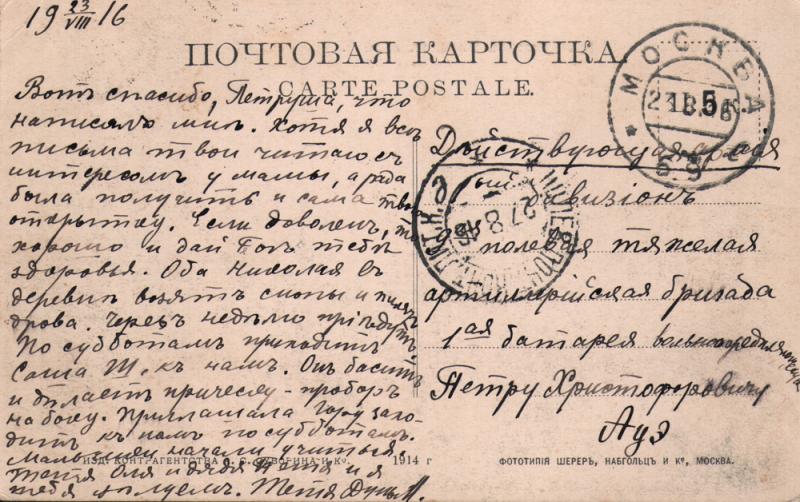 19 23/VIII 16
ПОЧТОВАЯ КАРТОЧКА.
CARTE POSTALE.
Вотъ спасибо, Петруша, что
написалъ мнѣ. Хотя я всѣ
письма твои читаю съ
интересомъ у мамы, а рада
была получить и сама твою
открытку. Если доволенъ, то
хорошо и дай Богъ тебѣ
здоровья. Оба Николая въ
деревнѣ возятъ снопы и пилятъ
дрова. Черезъ недѣлю пріѣдутъ.
По субботамъ приходитъ
Саша Ш. къ намъ. Онъ баситъ
и дѣлаетъ прическу - проборъ
на боку. Приглашала захо-
дить къ намъ по субботамъ.
Мальчики начали учиться.
Тетя Оля и дядя и я
тебя цѣлуемъ. Тетя
Дѣйствующая армія
дивизіонъ
полевая тяжелая
артиллерійская бригада
1ая батарея вольноопредѣляющемуся
Петру Христофоровичу
Ауэ
МОСКВА
27 8 16
ИЗД. КОНТРАГЕНТСТВА А. С. СУВОРИНА и Ко. 1914 г
ФОТОТИПІЯ ШЕРЕРЪ, НАБГОЛЬЦЪ И Ко, МОСКВА.